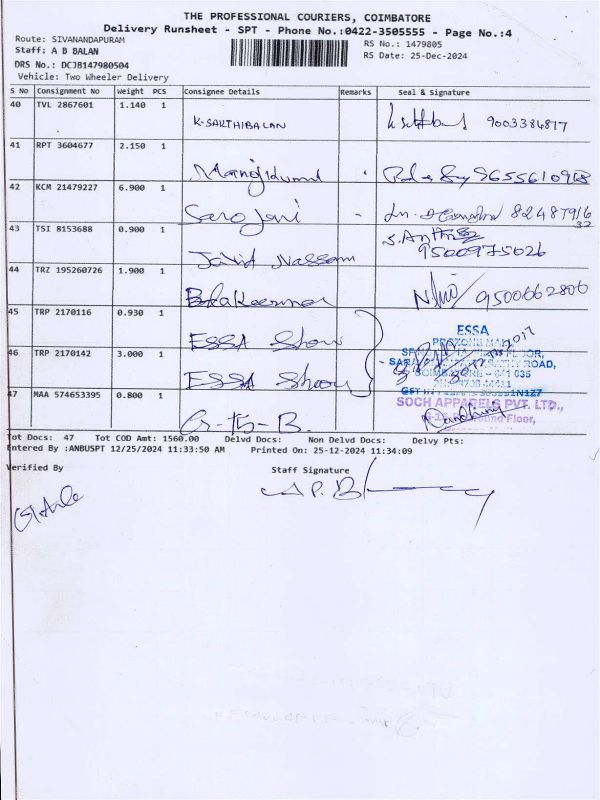 THE PROFESSIONAL COURIERS, COIMBATORE
Delivery Runsheet - SPT - Phone No.:0422-3505555 - Page No.:4
Route: SIVANANDAPURAM
RS No.: 1479805
Staff: A B BALAN
RS Date: 25-Dec-2024
DRS No.: DCJB147980504
Vehicle: Two Wheeler Delivery
S No Consignment No Weight PCS Consignee Details Remarks Seal & Signature
40 TVL 2867601 1.140 1
K-SAKTHIBALAN 9003384877
41 RPT 3604677 2.150 1
Manojkumar
42 KCM 21479227 6.900 1
Sarojani
43 TSI 8153688 0.900 1
Javid Nassam 9500975026
44 TRZ 195260726 1.900 1
Balakumar 9500662806
45 TRP 2170116 0.930 1
ESSA
46 TRP 2170142 3.000 1
ESSA
47 MAA 574653395 0.800 1
G-15-B.
ESSA
COIMBATORE - 641 035
SOCH APPARELS PVT. LTD.,
Tot Docs: 47 Tot COD Amt: 1560.00 Delvd Docs: Non Delvd Docs: Delvy Pts:
Entered By :ANBUSPT 12/25/2024 11:33:50 AM Printed On: 25-12-2024 11:34:09
Verified By Staff Signature